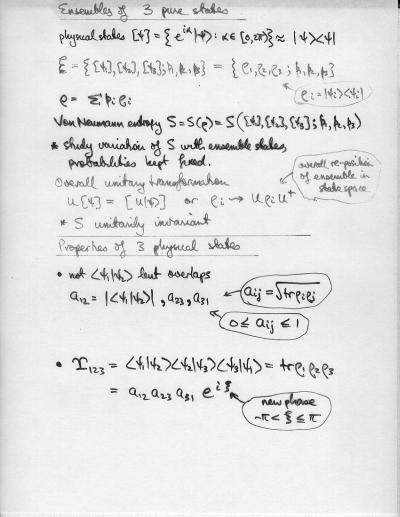 Ensembles of 3 pure states
physical states [ψ] = { e^{iα}|ψ⟩ : α ∈ [0,2π)} ≈ |ψ⟩⟨ψ|
ℰ = {[ψ₁],[ψ₂],[ψ₃]; p₁,p₂,p₃} = {ρ₁,ρ₂,ρ₃; p₁,p₂,p₃}
ρᵢ = |ψᵢ⟩⟨ψᵢ|
ρ = Σ pᵢ ρᵢ
Von Neumann entropy S = S(ρ) = S([ψ₁],[ψ₂],[ψ₃]; p₁,p₂,p₃)
* study variation of S with ensemble states,
probabilities kept fixed.
overall re-position
of ensemble in
state space
Overall unitary transformation
U[ψ] = [U|ψ⟩] or ρᵢ → U ρᵢ U⁺
* S unitarily invariant
Properties of 3 physical states
• not ⟨ψ₁|ψ₂⟩ but overlaps
a₁₂ = |⟨ψ₁|ψ₂⟩|, a₂₃, a₃₁
aᵢⱼ = √tr ρᵢρⱼ
0 ≤ aᵢⱼ ≤ 1
• ϒ₁₂₃ = ⟨ψ₁|ψ₂⟩⟨ψ₂|ψ₃⟩⟨ψ₃|ψ₁⟩ = tr ρ₁ρ₂ρ₃
= a₁₂ a₂₃ a₃₁ e^{iξ}
new phase
-π < ξ ≤ π